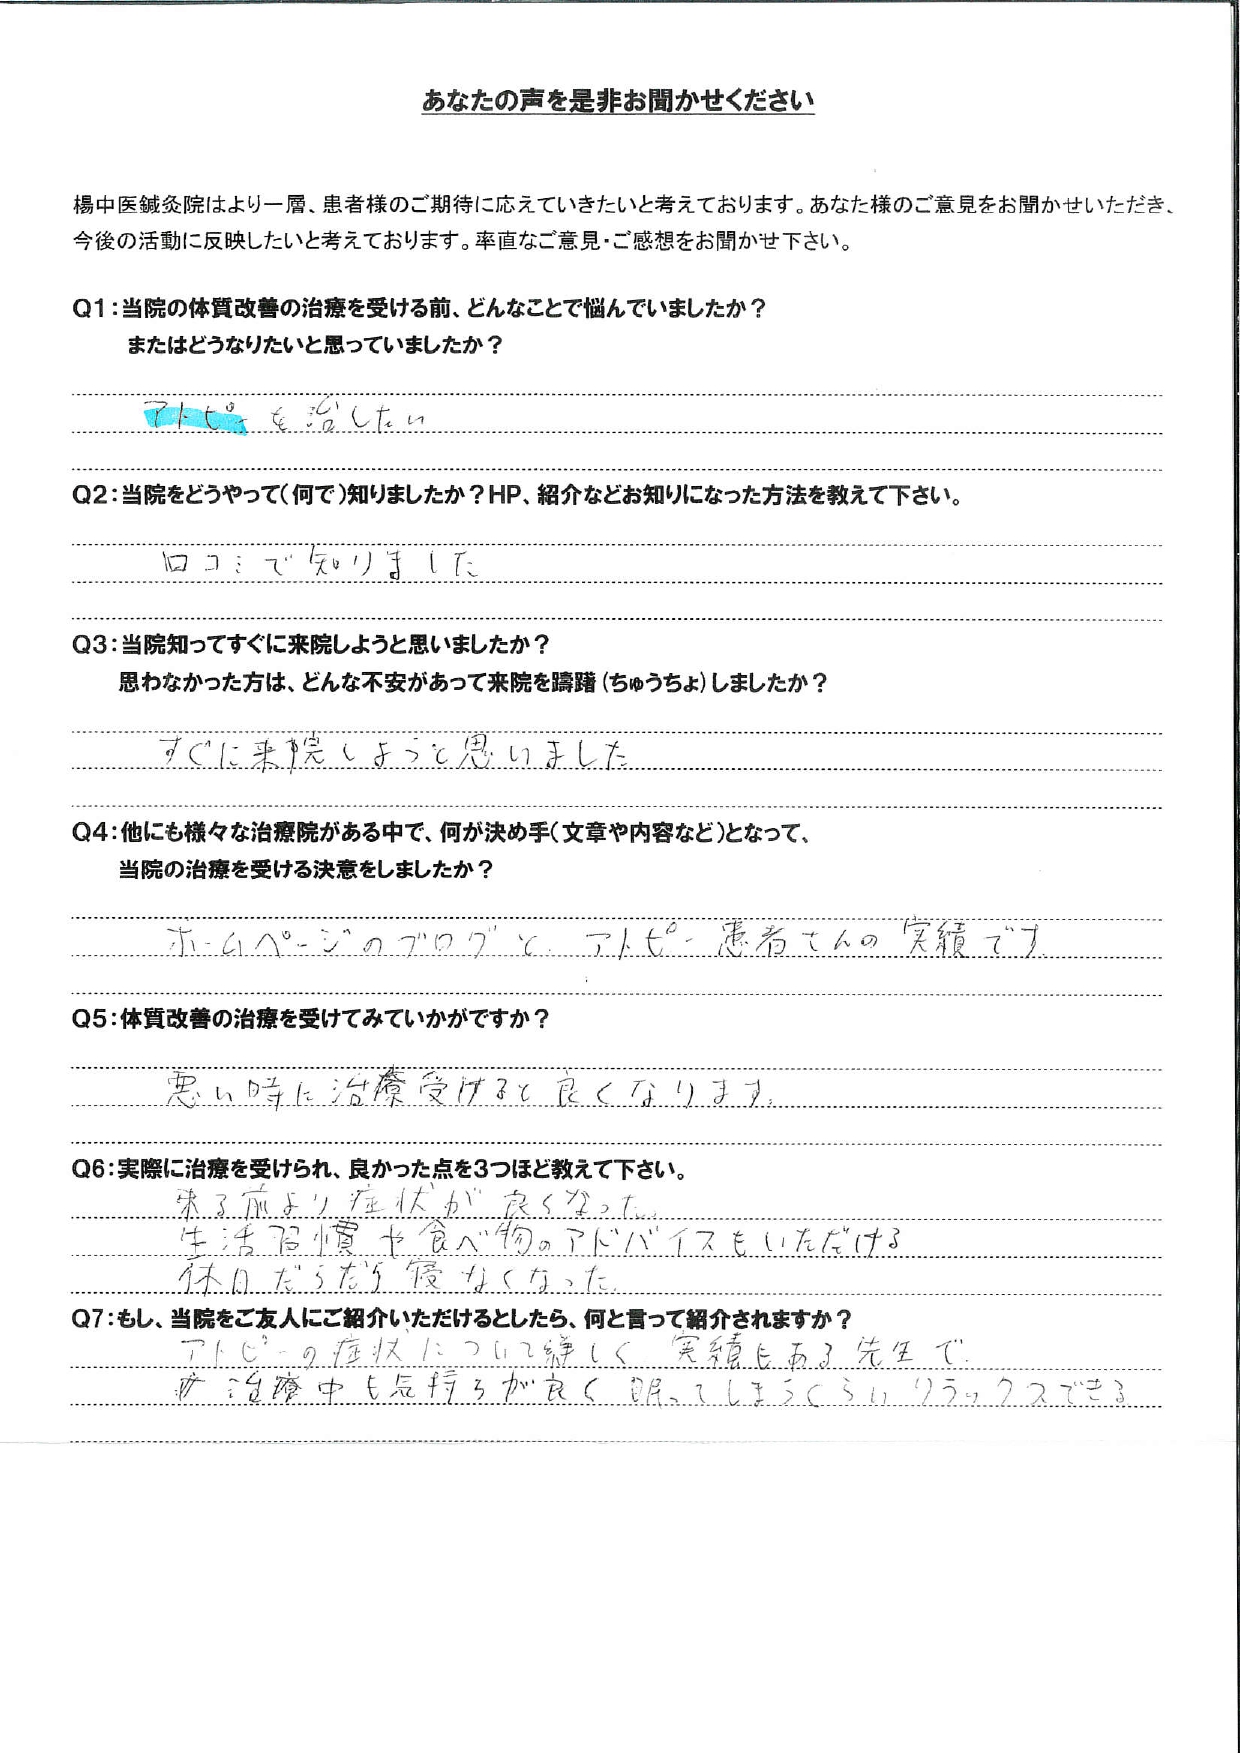 あなたの声を是非お聞かせください
楊中医鍼灸院はより一層、患者様のご期待に応えていきたいと考えております。あなた様のご意見をお聞かせいただき、
今後の活動に反映したいと考えております。率直なご意見・ご感想をお聞かせ下さい。
Q1：当院の体質改善の治療を受ける前、どんなことで悩んでいましたか？
またはどうなりたいと思っていましたか？
アトピーを治したい
Q2：当院をどうやって（何で）知りましたか？HP、紹介などお知りになった方法を教えて下さい。
口コミで知りました
Q3：当院知ってすぐに来院しようと思いましたか？
思わなかった方は、どんな不安があって来院を躊躇（ちゅうちょ）しましたか？
すぐに来院しようと思いました
Q4：他にも様々な治療院がある中で、何が決め手（文章や内容など）となって、
当院の治療を受ける決意をしましたか？
ホームページのブログと、アトピー患者さんの実績です。
Q5：体質改善の治療を受けてみていかがですか？
悪い時に治療受けると良くなります。
Q6：実際に治療を受けられ、良かった点を3つほど教えて下さい。
来る前より症状が良くなった。
生活習慣や食べ物のアドバイスもいただける
休日だらだら寝なくなった。
Q7：もし、当院をご友人にご紹介いただけるとしたら、何と言って紹介されますか？
アトピーの症状について詳しく実績もある先生で、
治療中も気持ちが良く眠ってしまうくらいリラックスできる